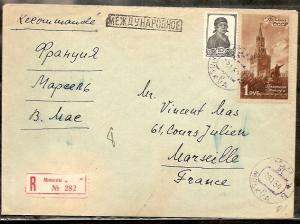 Recommandé
МЕЖДУНАРОДНОЕ
Франция
Марсель
В. Мас
1 РУБ.
Mr.
Vincent Mas
61, Cours Julien
Marseille
France
R
Москва
№ 282